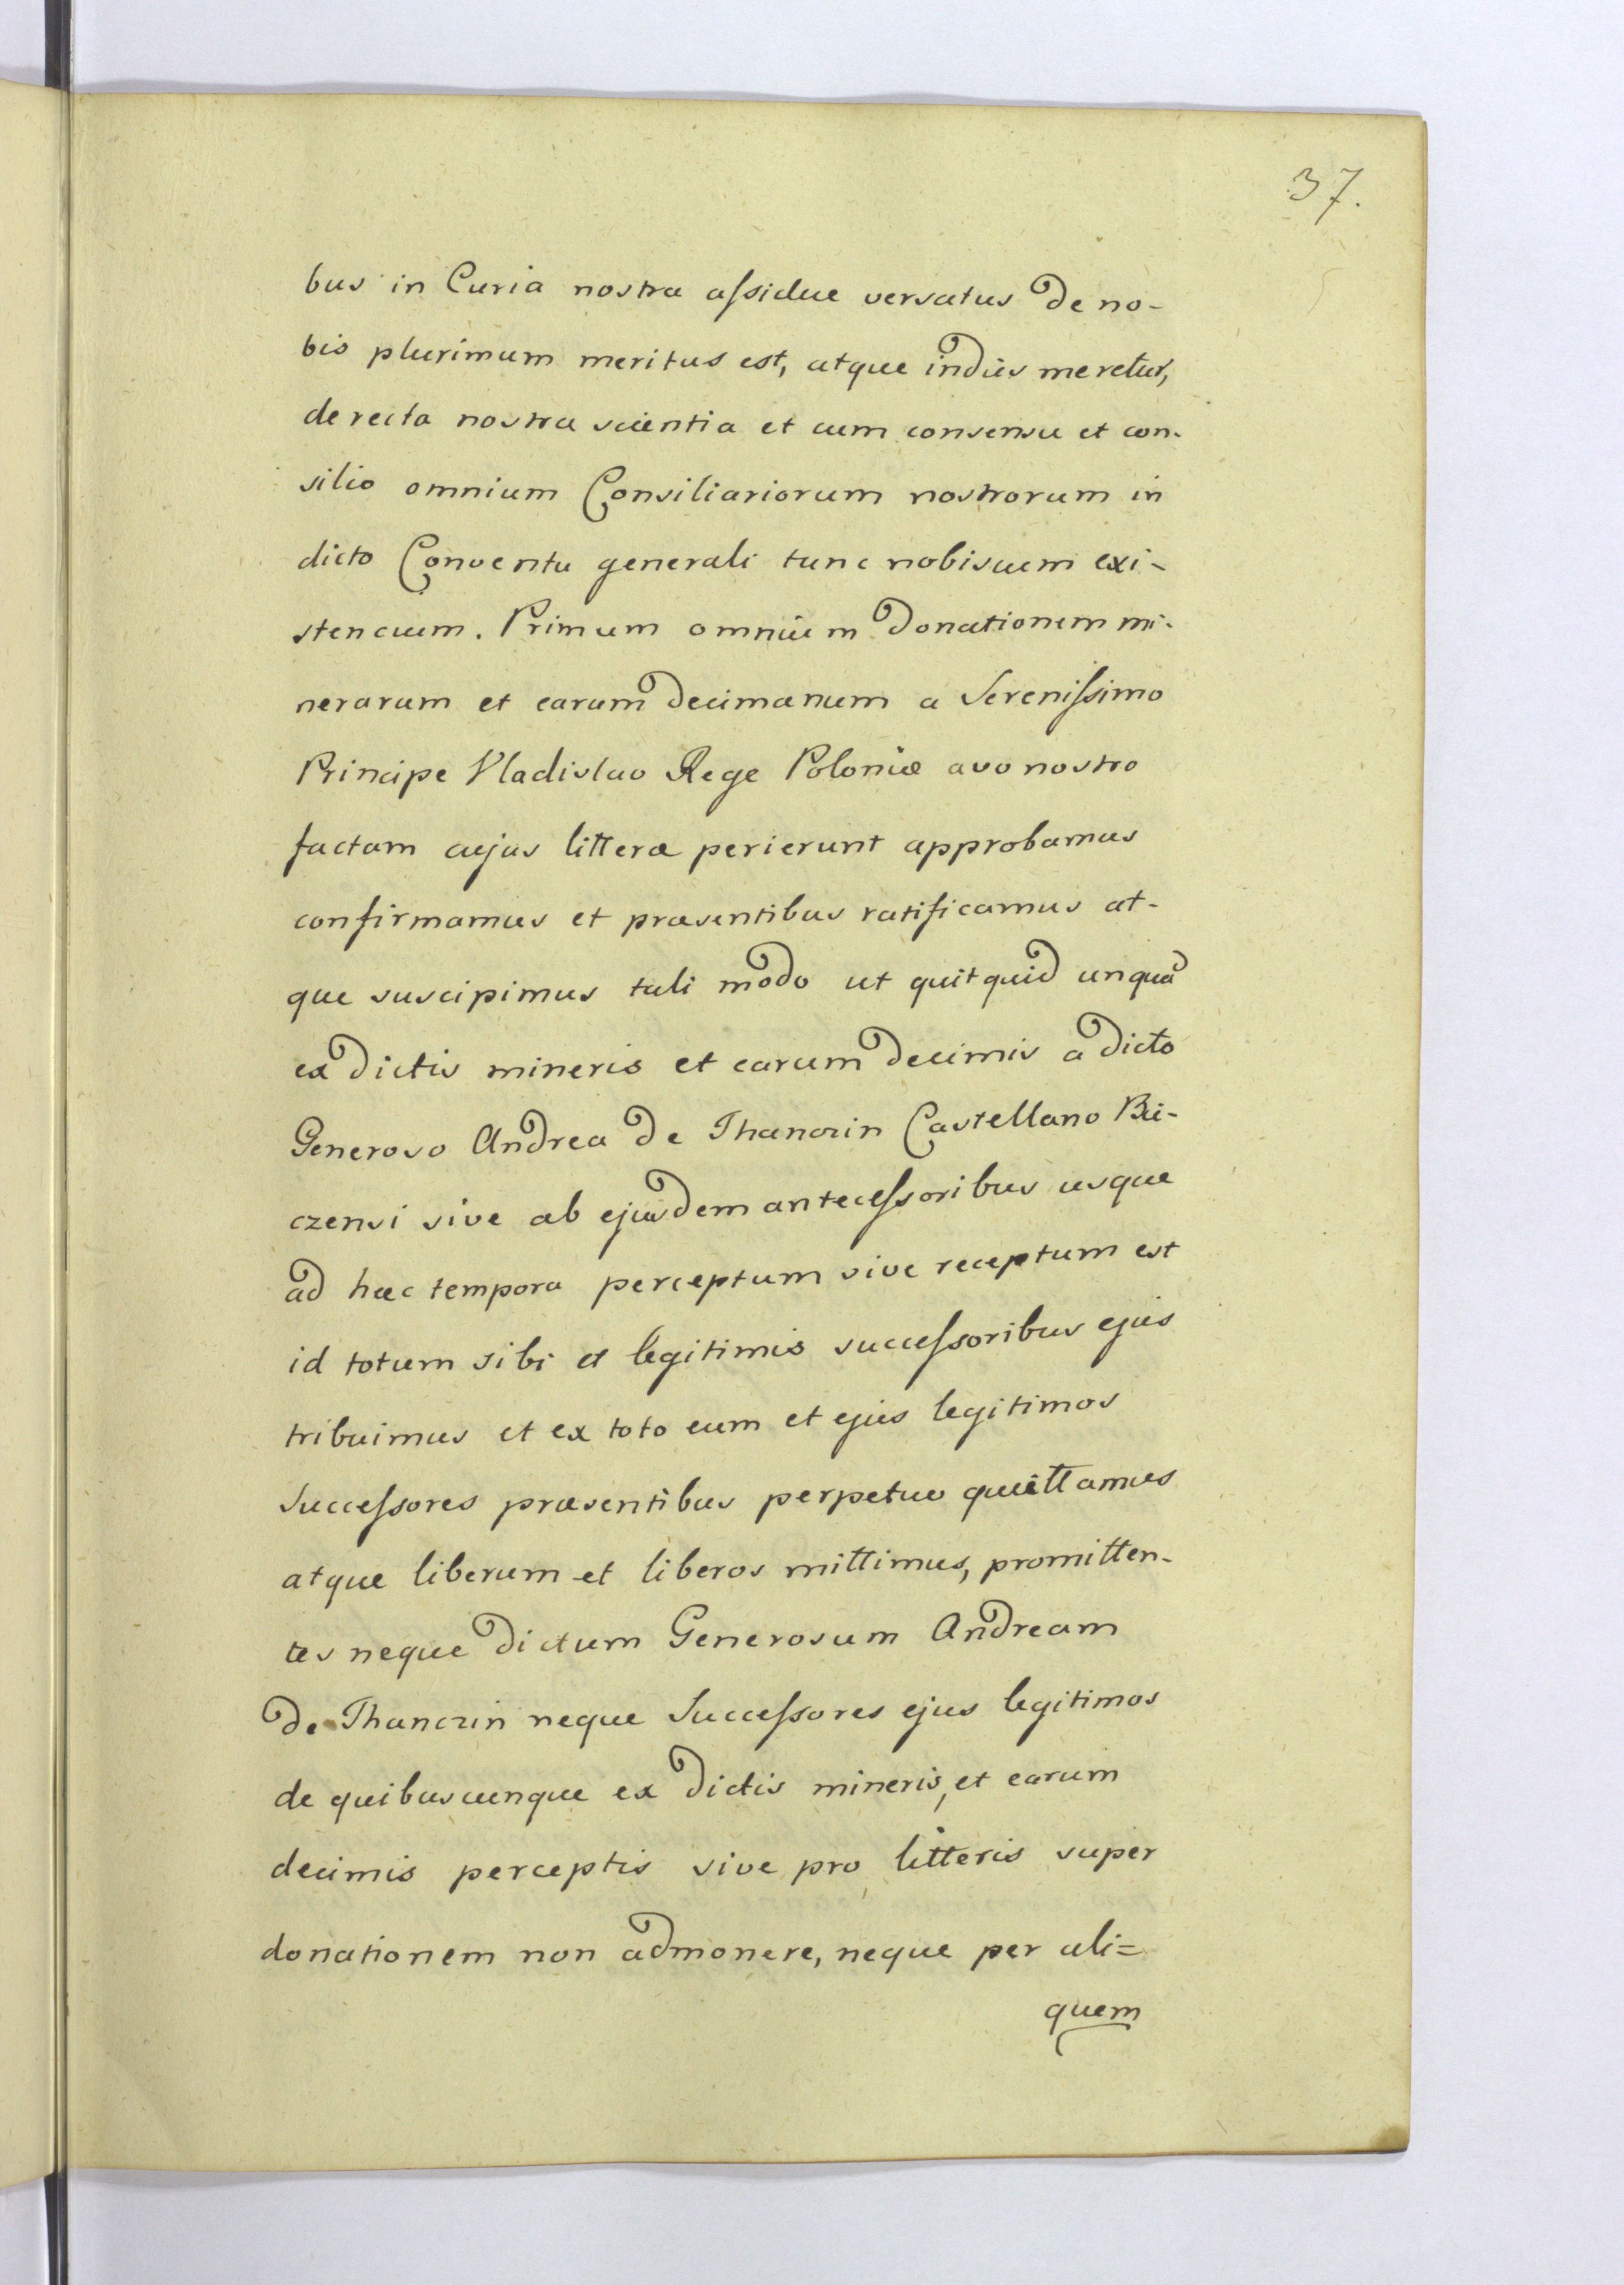 37.
bus in Curia nostra assidue versatus de no-
bis plurimum meritus est, atque indies meretur,
de recta nostra scientia et cum consensu et con-
silio omnium Consiliariorum nostrorum in
dicto Conventu generali tunc nobiscum exi-
stencium. Primum omnium donationem mi-
nerarum et earum decimarum a Serenissimo
Principe Vladislao Rege Poloniæ avo nostro
factam cujus litteræ perierunt approbamus
confirmamus et præsentibus ratificamus at-
que suscipimus tali modo ut quitquid unquã
ex dictis mineris et earum decimis a dicto
Generoso Andrea de Thanczin Castellano Bie-
czensi sive ab ejusdem antecessoribus usque
ad hæc tempora perceptum sive receptum est
id totum sibi et legitimis successoribus ejus
tribuimus et ex toto eum et ejus legitimos
Successores præsentibus perpetuo quittamus
atque liberum et liberos mittimus, promitten-
tes neque dictum Generosum Andream
de Thanczin neque Successores ejus legitimos
de quibuscunque ex dictis mineris, et earum
decimis perceptis sive pro litteris super
donationem non admonere, neque per ali=
quem